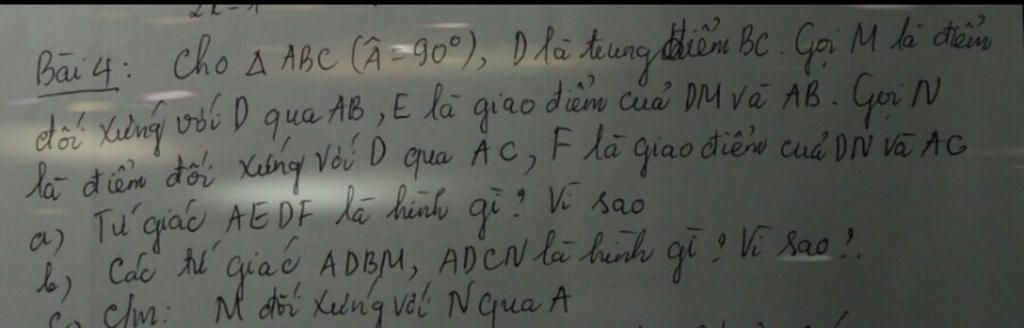 Bài 4: Cho Δ ABC (Â = 90°), D là trung điểm BC. Gọi M là điểm
đối xứng với D qua AB, E là giao điểm của DM và AB. Gọi N
là điểm đối xứng với D qua AC, F là giao điểm của DN và AC
a) Tứ giác AEDF là hình gì? Vì sao
b) Các tứ giác ADBM, ADCN là hình gì? Vì sao?
c) C/m: M đối xứng với N qua A